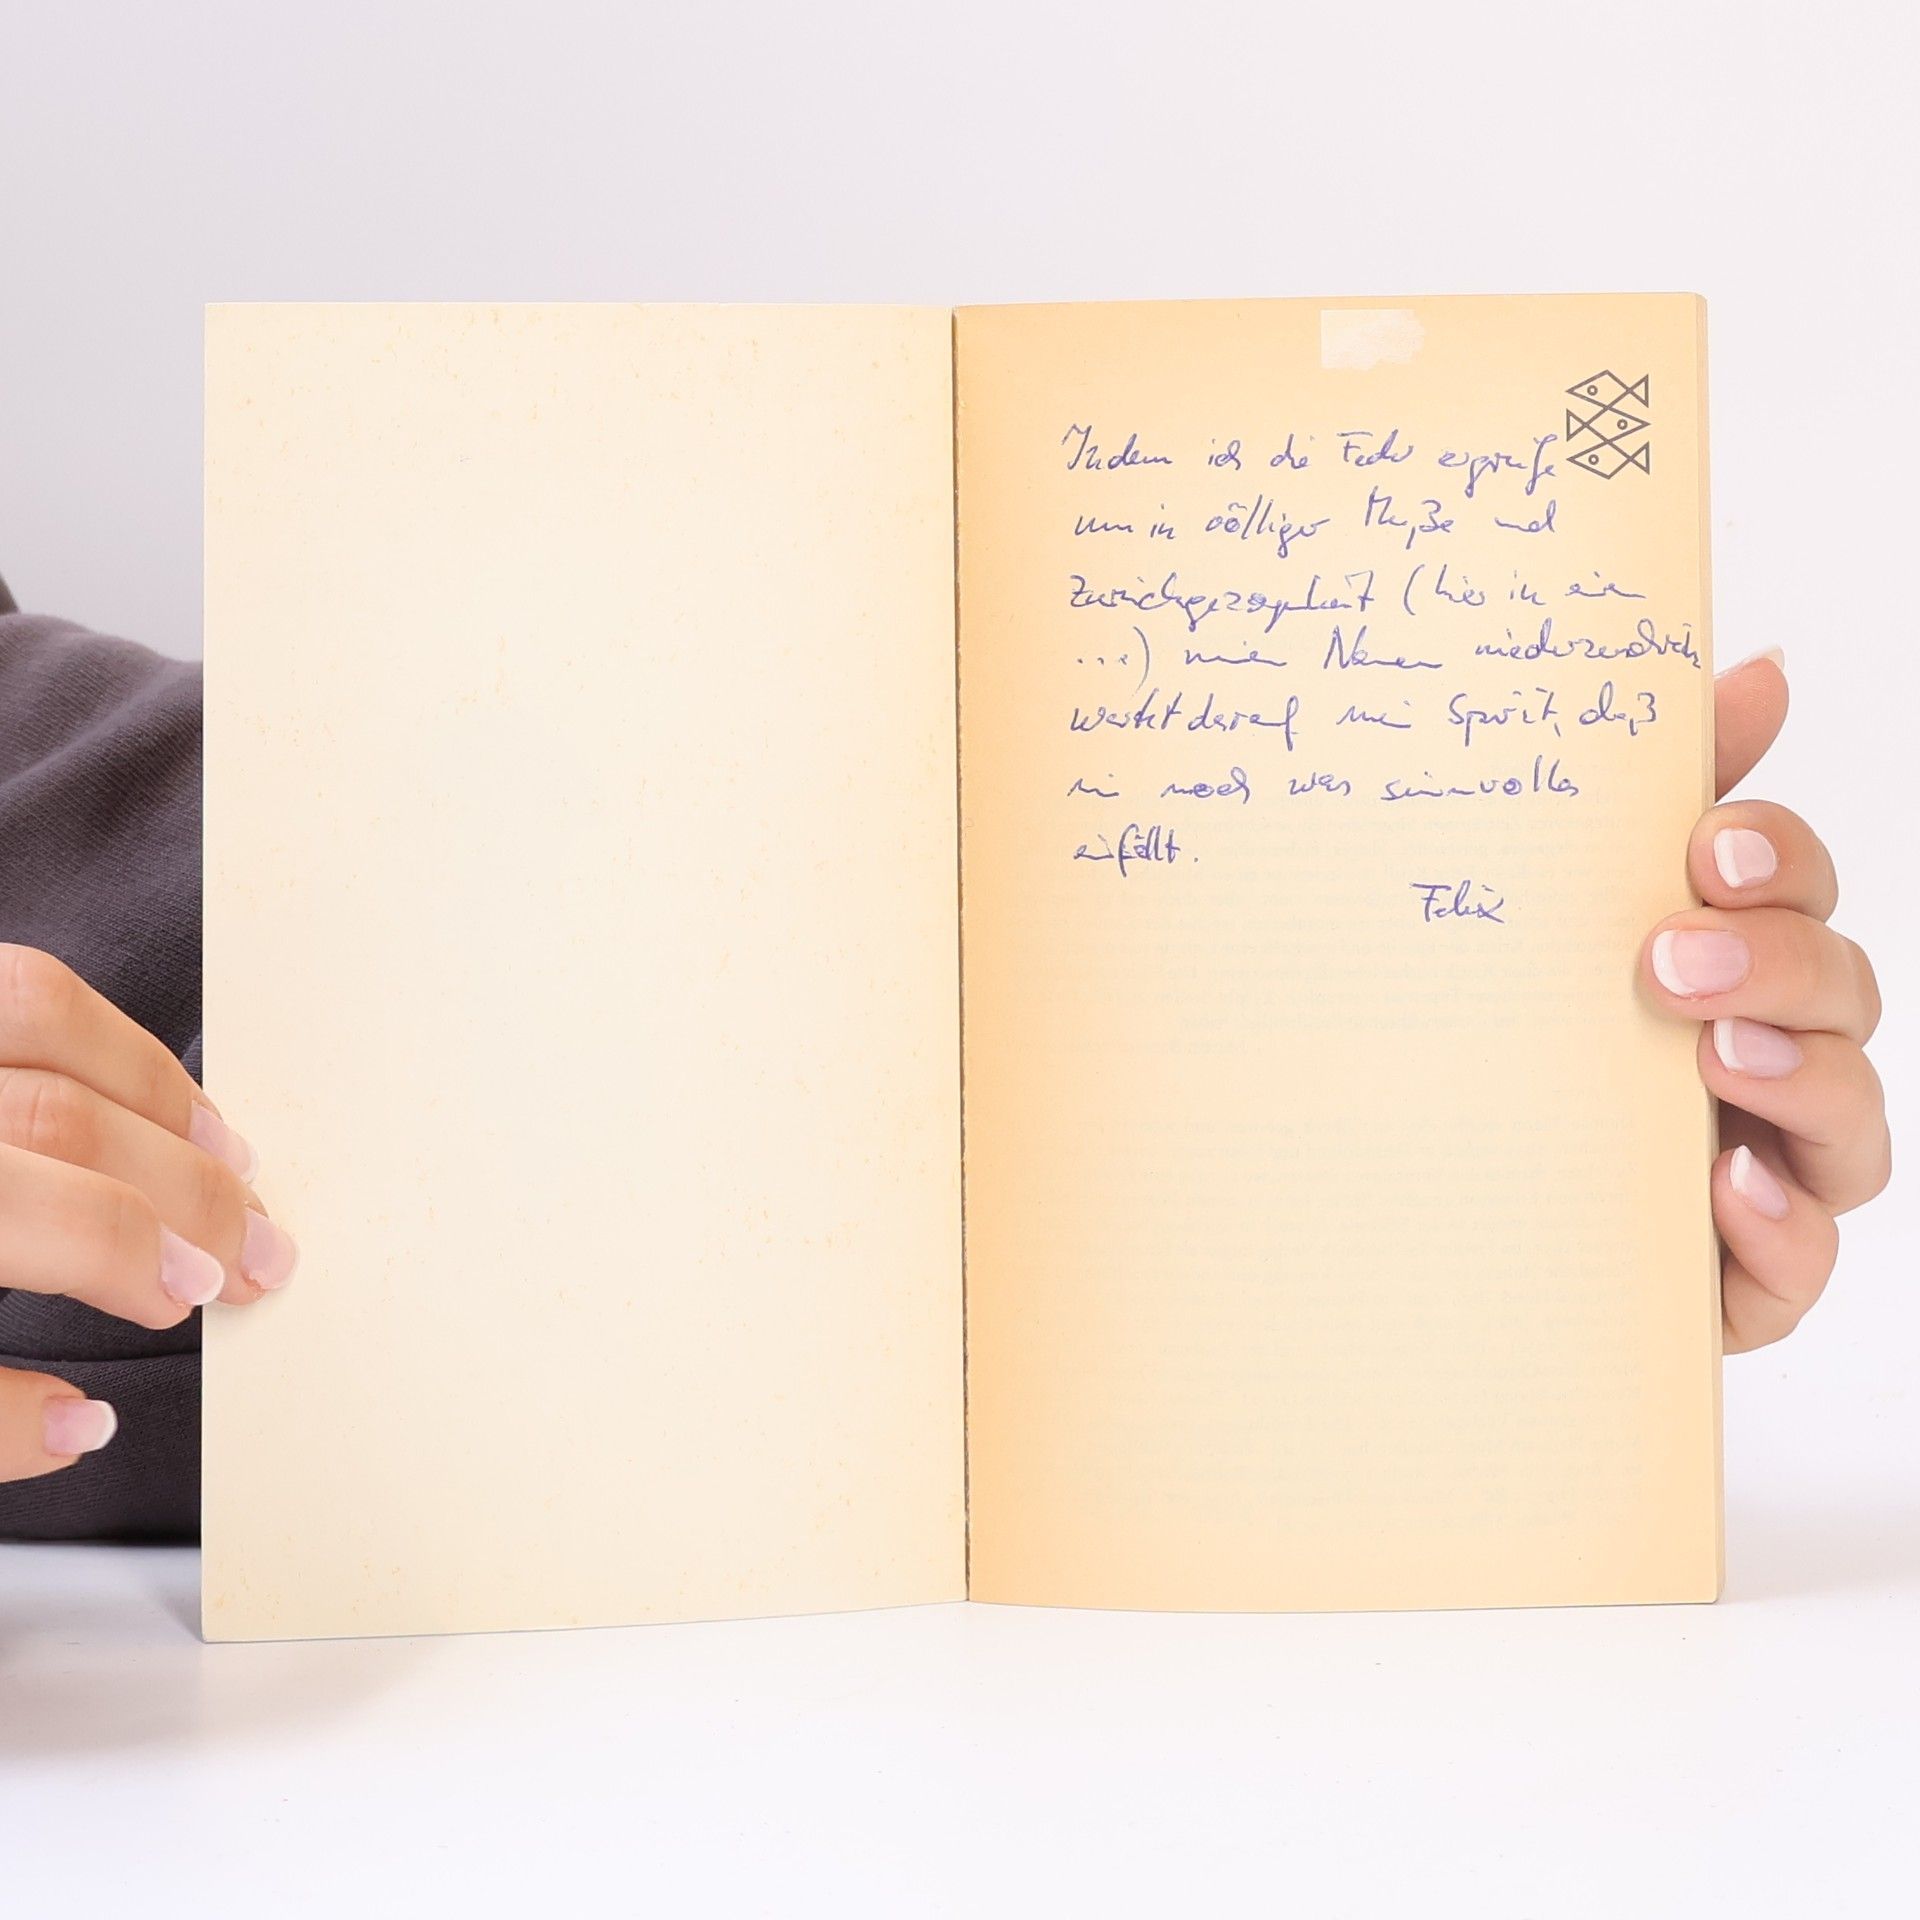 Indem ich die Feder ergreife
um in völliger Muße und
Zurückgezogenheit (hier in ein
...) meinen Namen niederzuschreiben
wartet darauf mein Spirit, daß
mir noch was sinnvolles
einfällt.
Felix